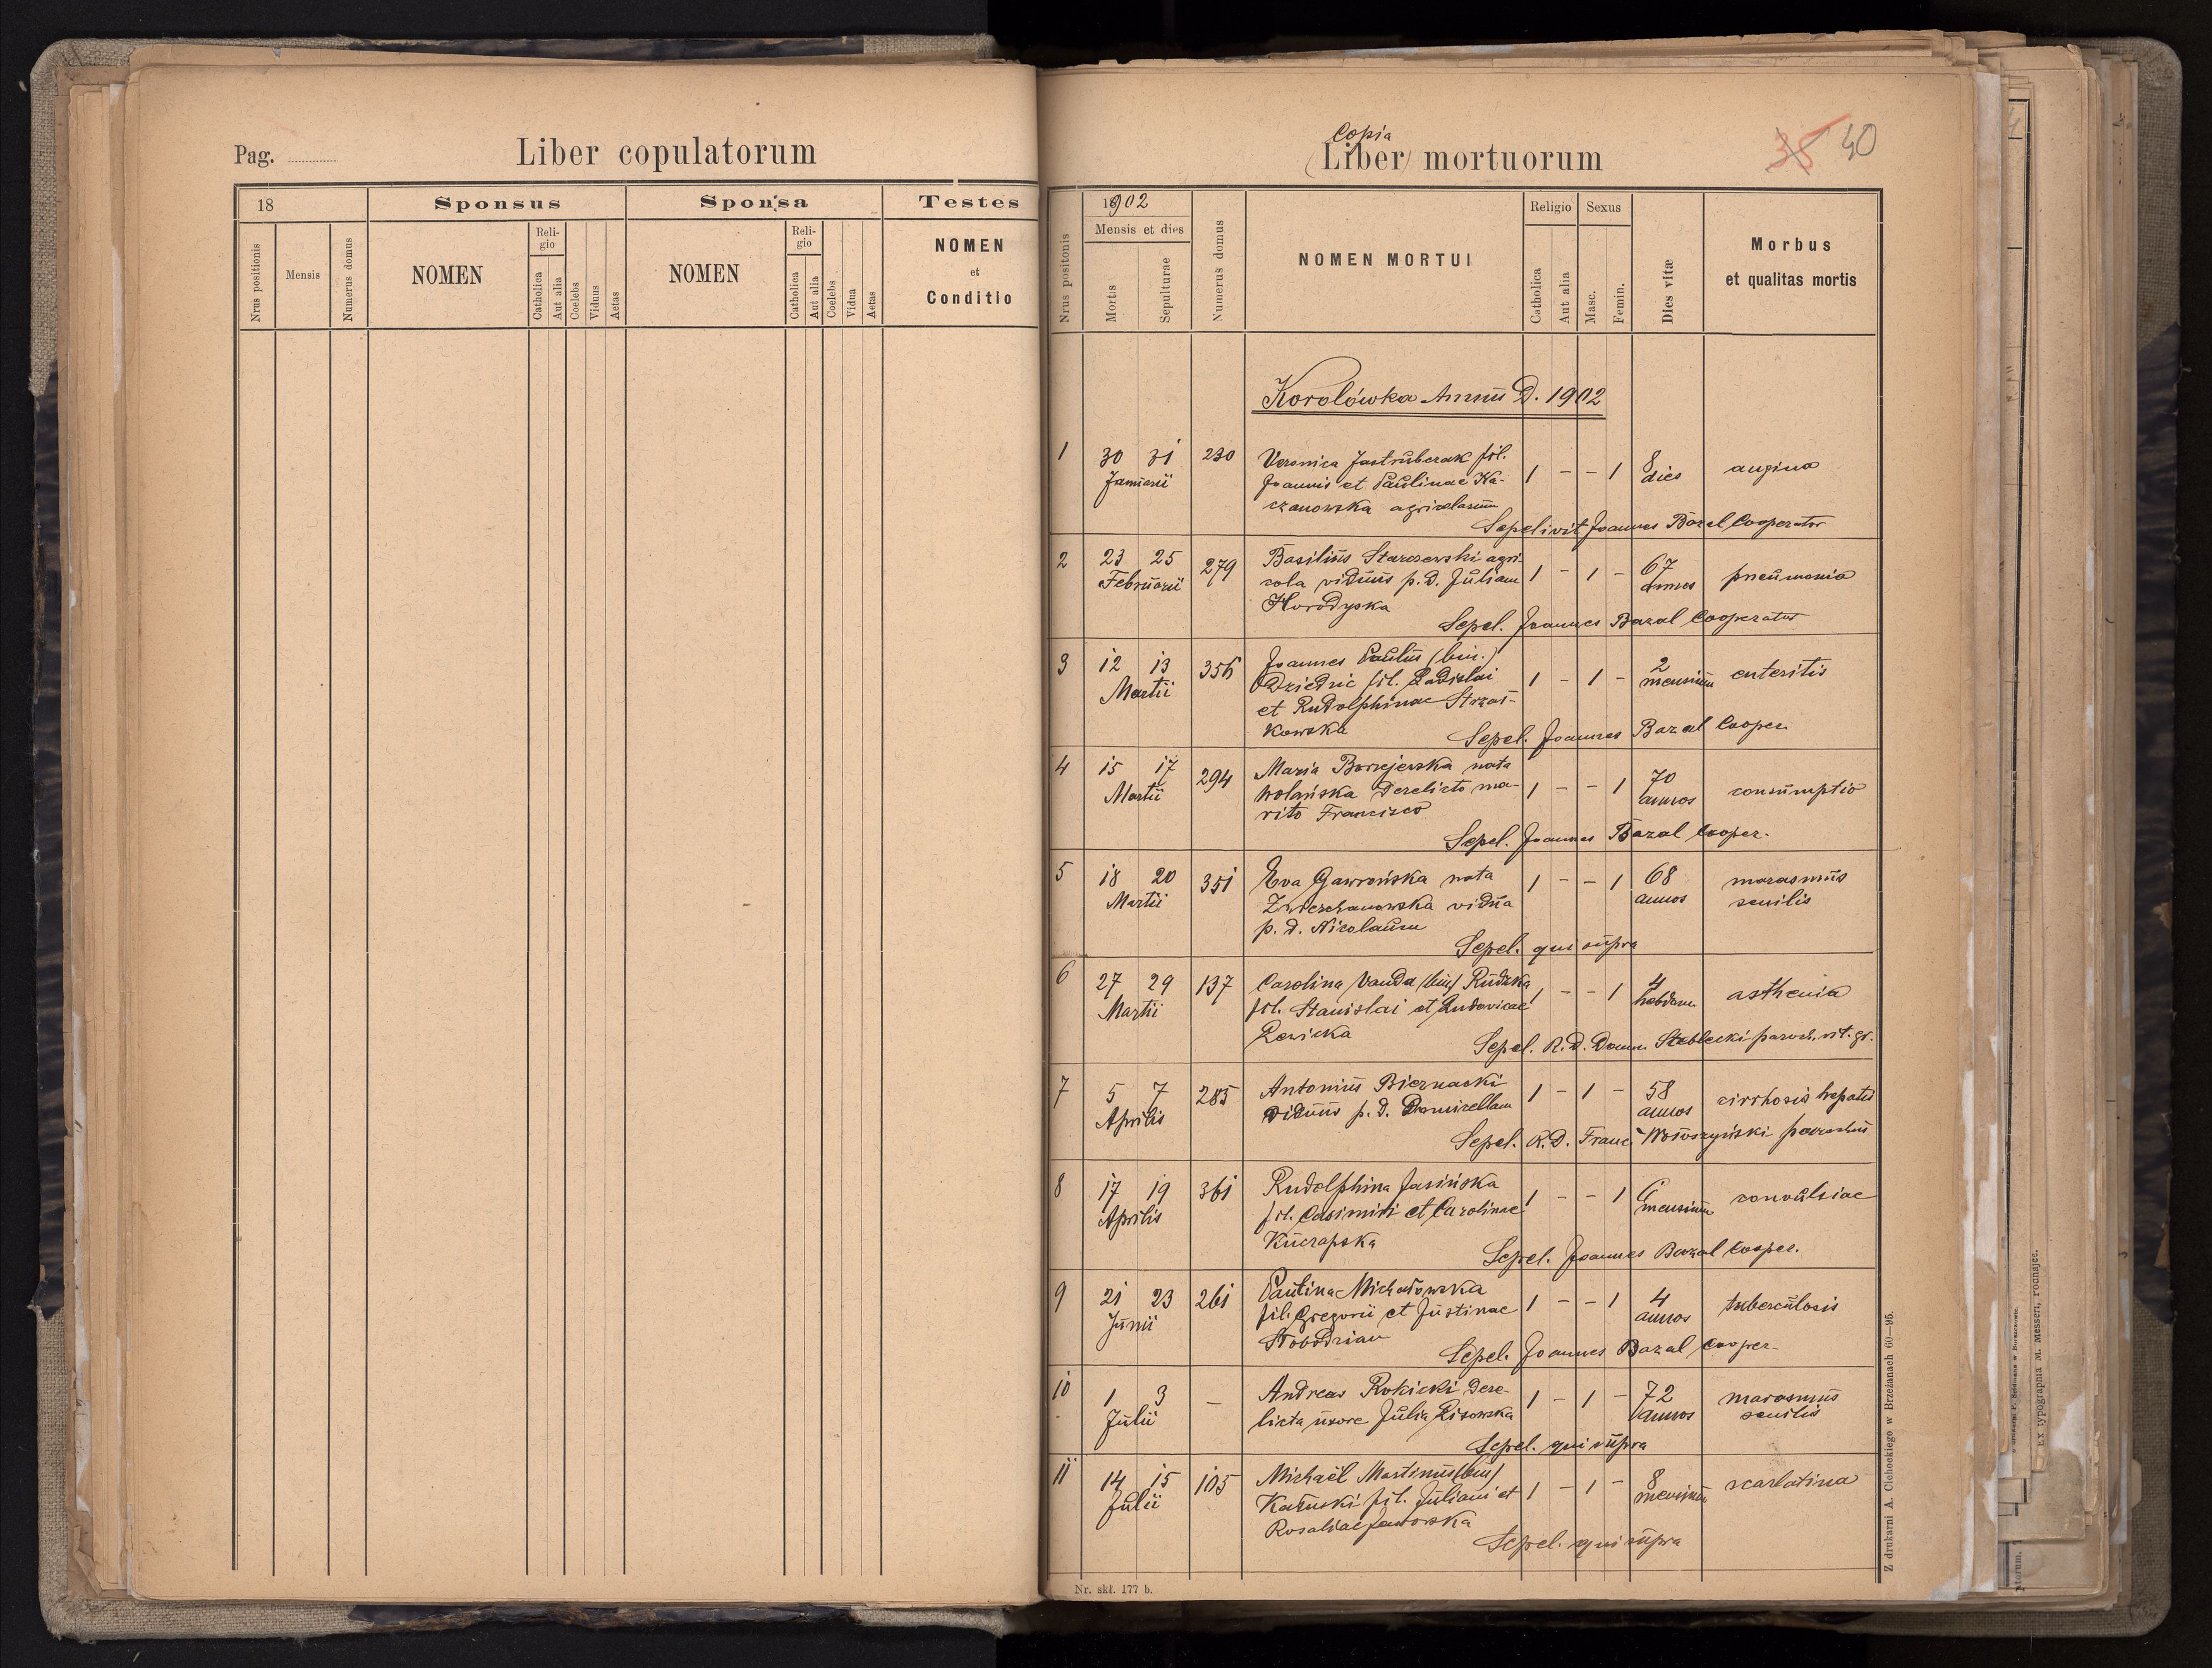 Pag. ............
Liber copulatorum
18
Sponsus
Sponsa
Testes
Nrus positionis
Mensis
Numerus domus
NOMEN
Religio
Catholica
Aut alia
Coelebs
Viduus
Aetas
NOMEN
Religio
Catholica
Aut alia
Coelebs
Vidua
Aetas
NOMEN
et
Conditio
Copia
(Liber) mortuorum
35 40
Nrus positonis
1902
Mensis et dies
Mortis
Sepulturae
Numerus domus
NOMEN MORTUI
Religio
Catholica
Aut alia
Sexus
Masc.
Femin.
Dies vitæ
Morbus
et qualitas mortis
Korolówka Anni D. 1902
1 30 31 230 Veronica Jastruberak fil. 1 - - 1 8 angina
Januarii Joannis et Paulinae Ka- dies
czanowska agricolarum
Sepelivit Joannes Bazal Cooperator
2 23 25 279 Basilius Starczewski agri- 1 - 1 - 67 pneumonia
Februarii cola viduus p. d. Juliam annos
Horodyska
Sepel. Joannes Bazal Cooperator
3 12 13 356 Joannes Paulus (bin.) 1 - 1 - 2 enteritis
Martii Dziedzic fil. Ladislai mensium
et Rudolphinae Strzał-
kowska
Sepel. Joannes Bazal Cooper.
4 15 17 294 Maria Borzejewska nata 1 - - 1 70 consumptio
Martii Wolańska derelicto ma- annos
rito Francisco
Sepel. Joannes Bazal Cooper.
5 18 20 351 Eva Gawrońska nata 1 - - 1 68 marasmus
Martii Zwierzchanowska vidua annos senilis
p. d. Nicolaum
Sepel. qui supra
6 27 29 137 Carolina Vanda (bin) Rudzka 1 - - 1 4 asthenia
Martii fil. Stanislai et Ludovicae hebdom.
Lewicka
Sepel. R. D. Damn. Steblecki paroch. rit. gr.
7 5 7 285 Antonius Biernacki 1 - 1 - 58 cirrhosis hepatis
Aprilis viduus p. d. Domicellam annos
Sepel. R. D. Franc. Wołoszyński parochus
8 17 19 361 Rudolphina Jasińska 1 - - 1 6 convulsiae
Aprilis fil. Casimiri et Carolinae mensium
Kucrapska
Sepel. Joannes Bazal Cooper.
9 21 23 261 Paulina Michałowska 1 - - 1 4 tuberculosis
Junii fil. Gregorii et Justinae annos
Słobodzian
Sepel. Joannes Bazal Cooper.
10 1 3 - Andreas Rokicki dere- 1 - 1 - 72 marasmus
Julii licta uxore Julia Lisowska annos senilis
Sepel. qui supra
11 14 15 105 Michaël Martinus (bin) 1 - 1 - 8 scarlatina
Julii Kałuski fil. Juliani et mensium
Rosaliae Jaworska
Sepel. qui supra
Nr. skł. 177 b.
Z drukarni A. Cichockiego w Brzeżanach 60—95.
Ex typographia M. Messeri, rodnajec.